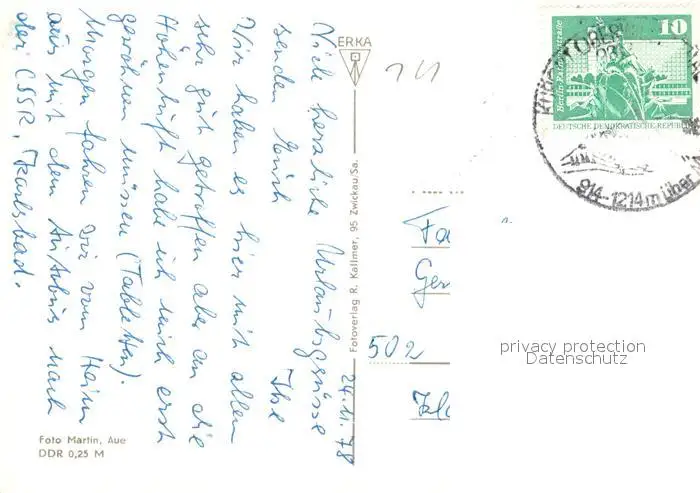 Viele herzliche Urlaubsgrüsse
senden Euch Ihse
Wir haben es hier mit allem
sehr gut getroffen aber an die
Höhenluft habe ich mich erst
gewöhnen müssen (Tabletten).
Morgen fahren wir vom Heim
aus mit dem Autobus nach
der CSSR, Karlsbad.
24.11.78
Foto Martin, Aue
DDR 0,25 M
ERKA
Fotoverlag R. Kallmer, 95 Zwickau/Sa.
Fa
Ger
502
10
Berlin, Rathausstraße
DEUTSCHE DEMOKRATISCHE REPUBLIK
KURORT OBER
914-1214m über
privacy protection
Datenschutz